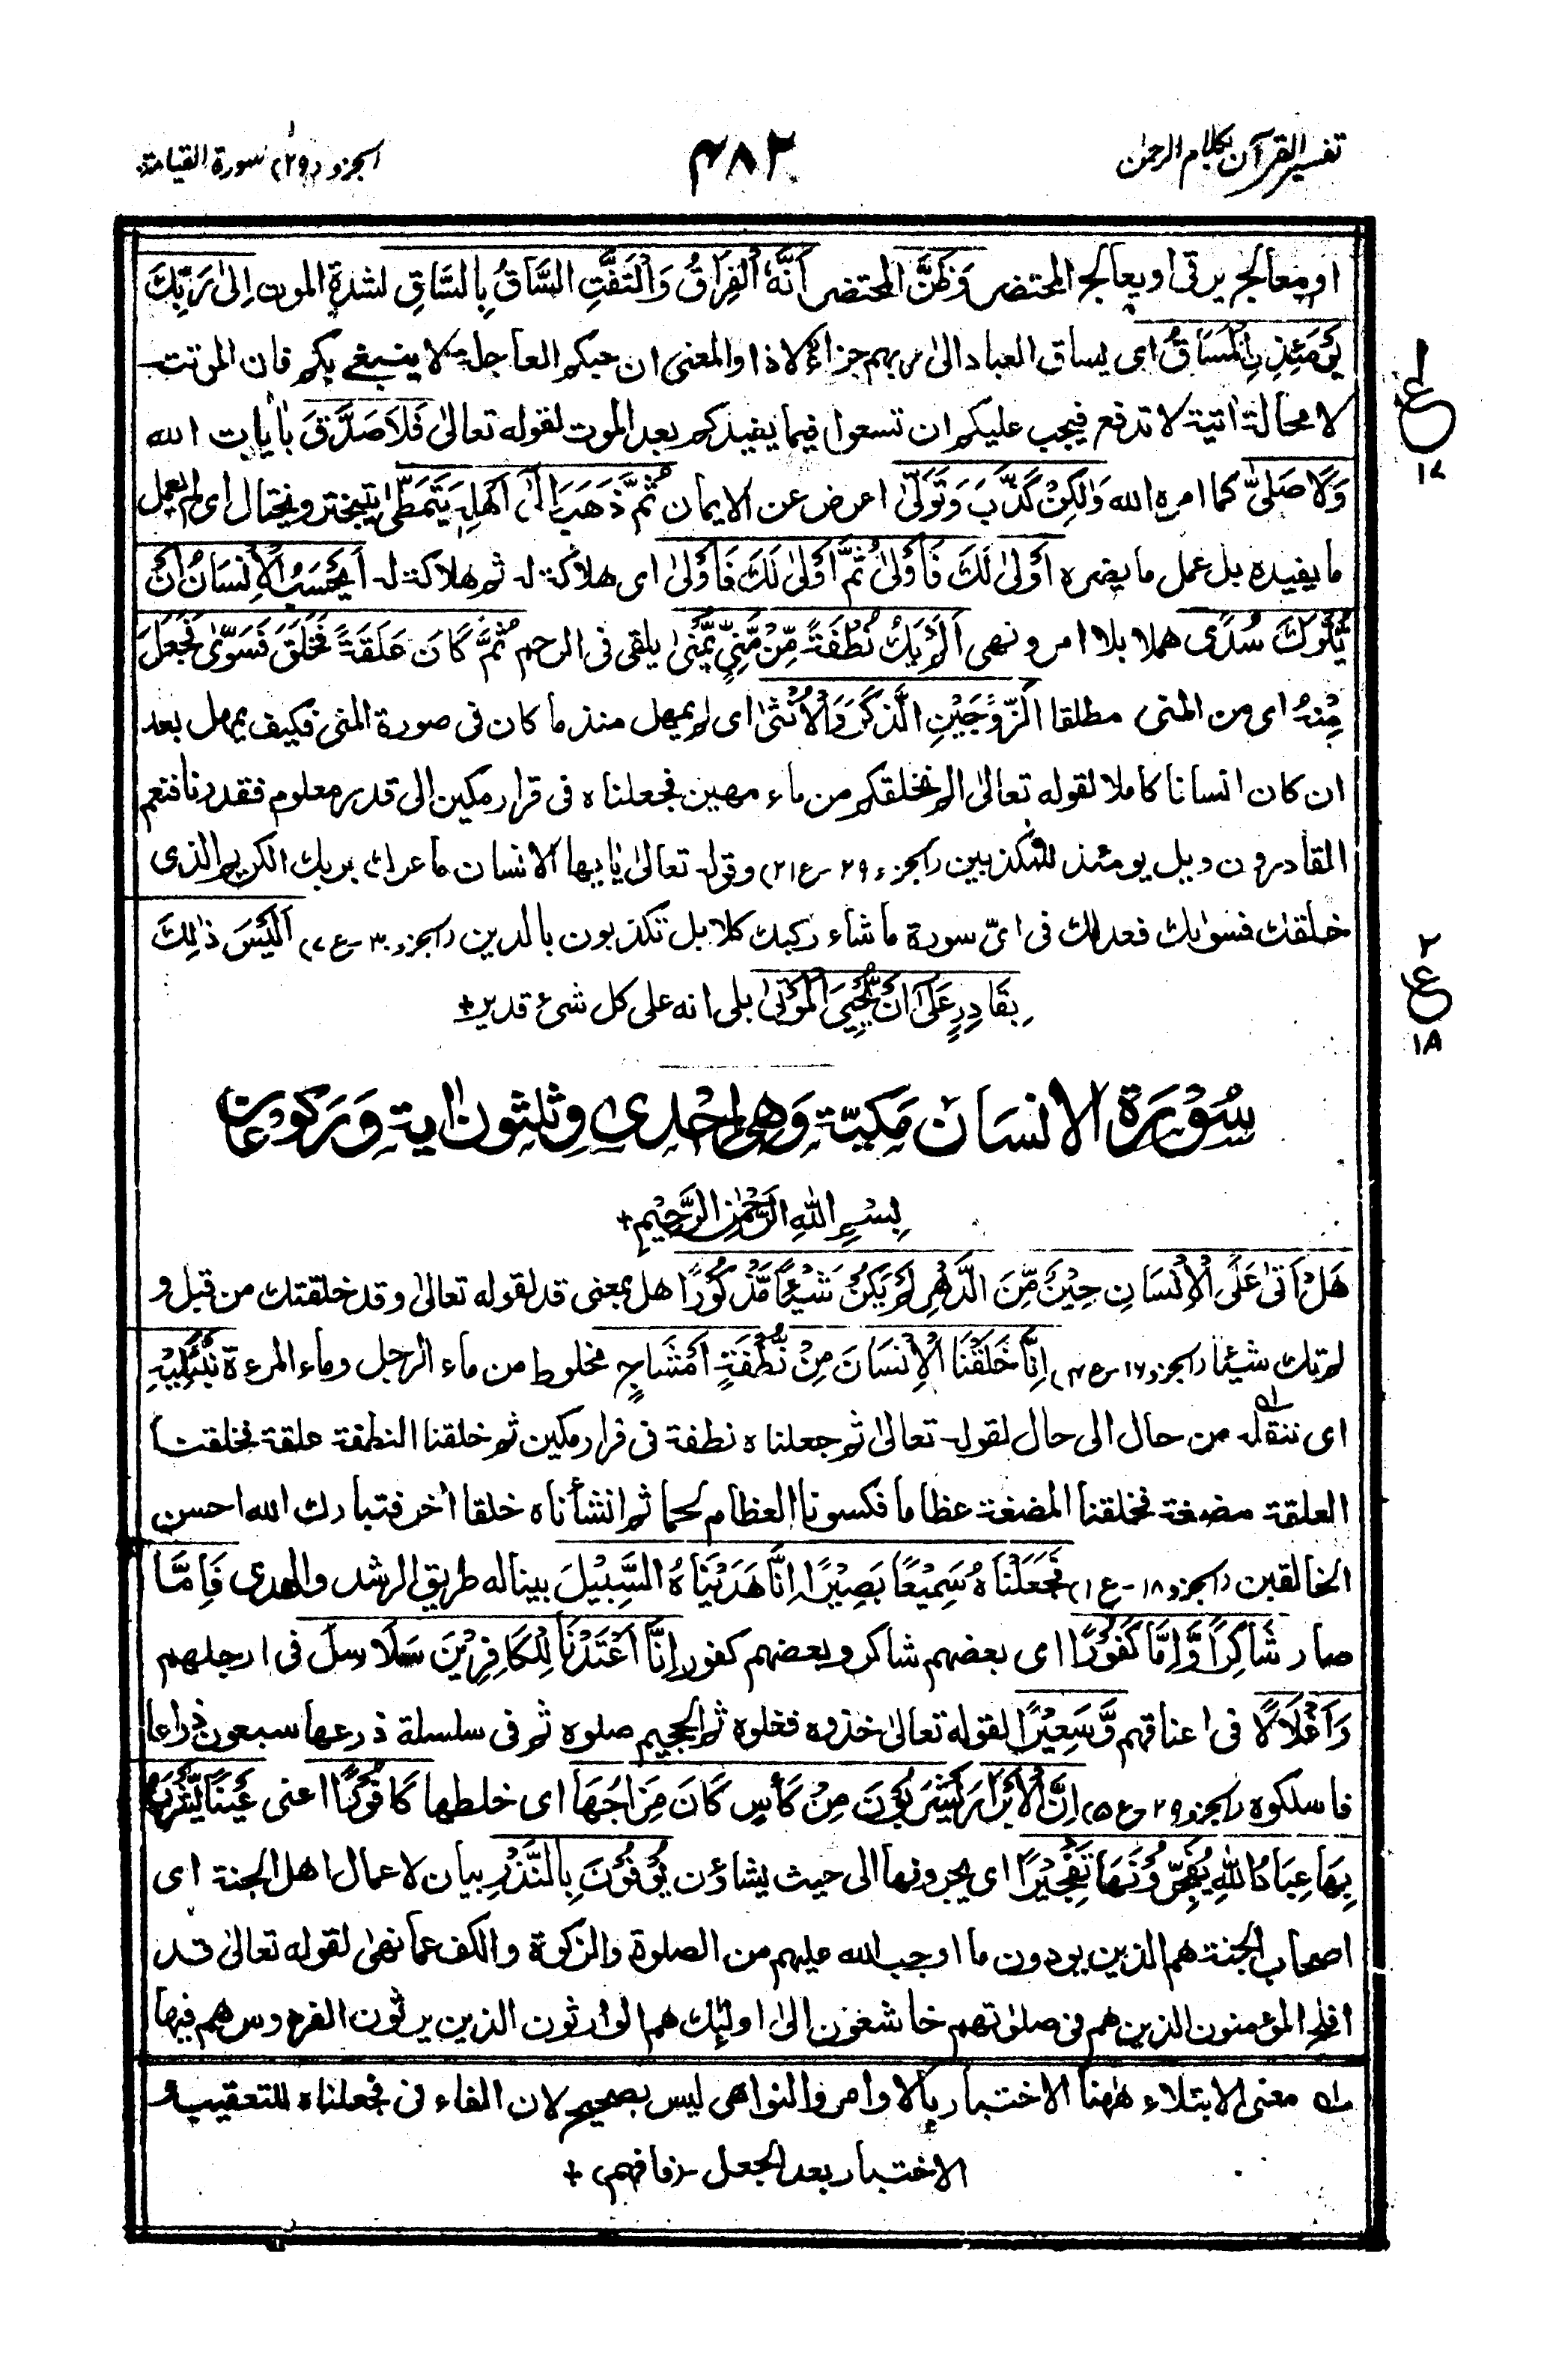 تفسير القرآن بكلام الرحمٰن
٤٨٢
الجزو (٢٩) سورة القيامة
او معالج يرقى او يعالج المحتضر وَظَنَّ المحتضر اَنَّهُ الْفِرَاقُ وَالْتَفَّتِ السَّاقُ بِالسَّاقِ لشدة الموت اِلٰى رَبِّكَ
يَوْمَئِذِ ِۨالْمَسَاقُ اى يساق العباد الىٰ ربهم جزاءً لاذا والمعنى ان حبكم العاجلة لا ينبغى بكم فان الموت
لا محالة اٰتية لا تدفع فيجب عليكم ان تسعوا فيما يفيدكم بعد الموت لقوله تعالىٰ فَلَا صَدَّقَ باٰيات الله
وَلَا صَلّٰى كما امره الله وَلٰكِنْ كَذَّبَ وَتَوَلّٰى اعرض عن الايمان ثُمَّ ذَهَبَ اِلٰى اَهْلِهٖ يَتَمَطّٰى يتبختر ويختال اى لم يعمل
ما يفيده بل عمل ما يضره اَوْلٰى لَكَ فَاَوْلٰى ثُمَّ اَوْلٰى لَكَ فَاَوْلٰى اى هلاكة له ثم هلاكة له اَيَحْسَبُ الْاِنْسَانُ اَنْ
يُّتْرَكَ سُدًى هملا بلا امر ونهى اَلَمْ يَكُ نُطْفَةً مِّنْ مَّنِيٍّ يُّمْنٰى يلقى فى الرحم ثُمَّ كَانَ عَلَقَةً فَخَلَقَ فَسَوّٰى فَجَعَلَ
مِنْهُ اى من المنى مطلقا الزَّوْجَيْنِ الذَّكَرَ وَالْاُنْثٰى اى لم يمهل منذ ما كان فى صورة المنى فكيف يمهل بعد
ان كان انسانا كاملا لقوله تعالىٰ الم نخلقكم من ماء مهين فجعلناه فى قرار مكين الى قدر معلوم فقدرنا فنعم
القادرون ويل يومئذ للمكذبين (الجزء ٢٩ - ع ٢١) وقوله تعالىٰ يٰايها الانسان ما غرك بربك الكريم الذى
خلقك فسوٰىك فعدلك فى اىّ سورة ما شاء ركبك كلا بل تكذبون بالدين (الجزو ٣٠ - ع ٧) اَلَيْسَ ذٰلِكَ
بِقَادِرٍ عَلٰى اَنْ يُّحْيِيَ الْمَوْتٰى بلى انه على كل شئ قدير +
١
ع
١٧
٢
ع
١٨
سُوْرَة الانسان مَكيّة وَهى احْدى وثلثون اٰية وَركوعان
بِسْمِ اللهِ الرَّحْمٰنِ الرَّحِيْمِ +
هَلْ اَتٰى عَلَى الْاِنْسَانِ حِيْنٌ مِّنَ الدَّهْرِ لَمْ يَكُنْ شَيْئًا مَّذْكُوْرًا هل بمعنى قد لقوله تعالىٰ وقد خلقتك من قبل و
لم تك شيئا (الجزو ١٦ - ع ٤) اِنَّا خَلَقْنَا الْاِنْسَانَ مِنْ نُّطْفَةٍ اَمْشَاجٍ مخلوط من ماء الرجل وماء المرءة نَّبْتَلِيْهِ
اى ننقله من حال الى حال لقوله تعالىٰ ثم جعلناه نطفة فى قرار مكين ثم خلقنا النطفة علقة فخلقنا
العلقة مضغة فخلقنا المضغة عظاما فكسونا العظام لحما ثم انشأناه خلقا اٰخر فتبارك الله احسن
الخالقين (الجزو ١٨ - ع ١) فَجَعَلْنَاهُ سَمِيْعًا بَصِيْرًا اِنَّا هَدَيْنَاهُ السَّبِيْلَ بينا له طريق الرشد والهدى فَاِمَّا
صار شَاكِرًا وَّاِمَّا كَفُوْرًا اى بعضهم شاكر وبعضهم كفور اِنَّا اَعْتَدْنَا لِلْكَافِرِيْنَ سَلَاسِلَ فى ارجلهم
وَاَغْلَالًا فى اعناقهم وَّسَعِيْرًا لقوله تعالىٰ خذوه فغلوه ثم الجحيم صلوه ثم فى سلسلة ذرعها سبعون ذراعا
فاسلكوه (الجزو ٢٩ - ع ٥) اِنَّ الْاَبْرَارَ يَشْرَبُوْنَ مِنْ كَأْسٍ كَانَ مِزَاجُهَا اى خلطها كَافُوْرًا اعنى عَيْنًا يَّشْرَبُ
بِهَا عِبَادُ اللهِ يُفَجِّرُوْنَهَا تَفْجِيْرًا اى يجرونها الى حيث يشاؤن يُوْفُوْنَ بِالنَّذْرِ بيان لاعمال اهل الجنة اى
اصحاب الجنة هم الذين يودون ما اوجب الله عليهم من الصلوة والزكوة والكف عما نهىٰ لقوله تعالىٰ قد
افلح المؤمنون الذين هم فى صلوٰتهم خاشعون الىٰ اولٰئك هم الوارثون الذين يرثون الفردوس هم فيها
ـله معنى الابتلاء هٰهنا الاختبار بالاوامر والنواهى ليس بصحيح لان الفاء فى فجعلناه للتعقيب و
الاختبار بعد الجعل (فافهم) +